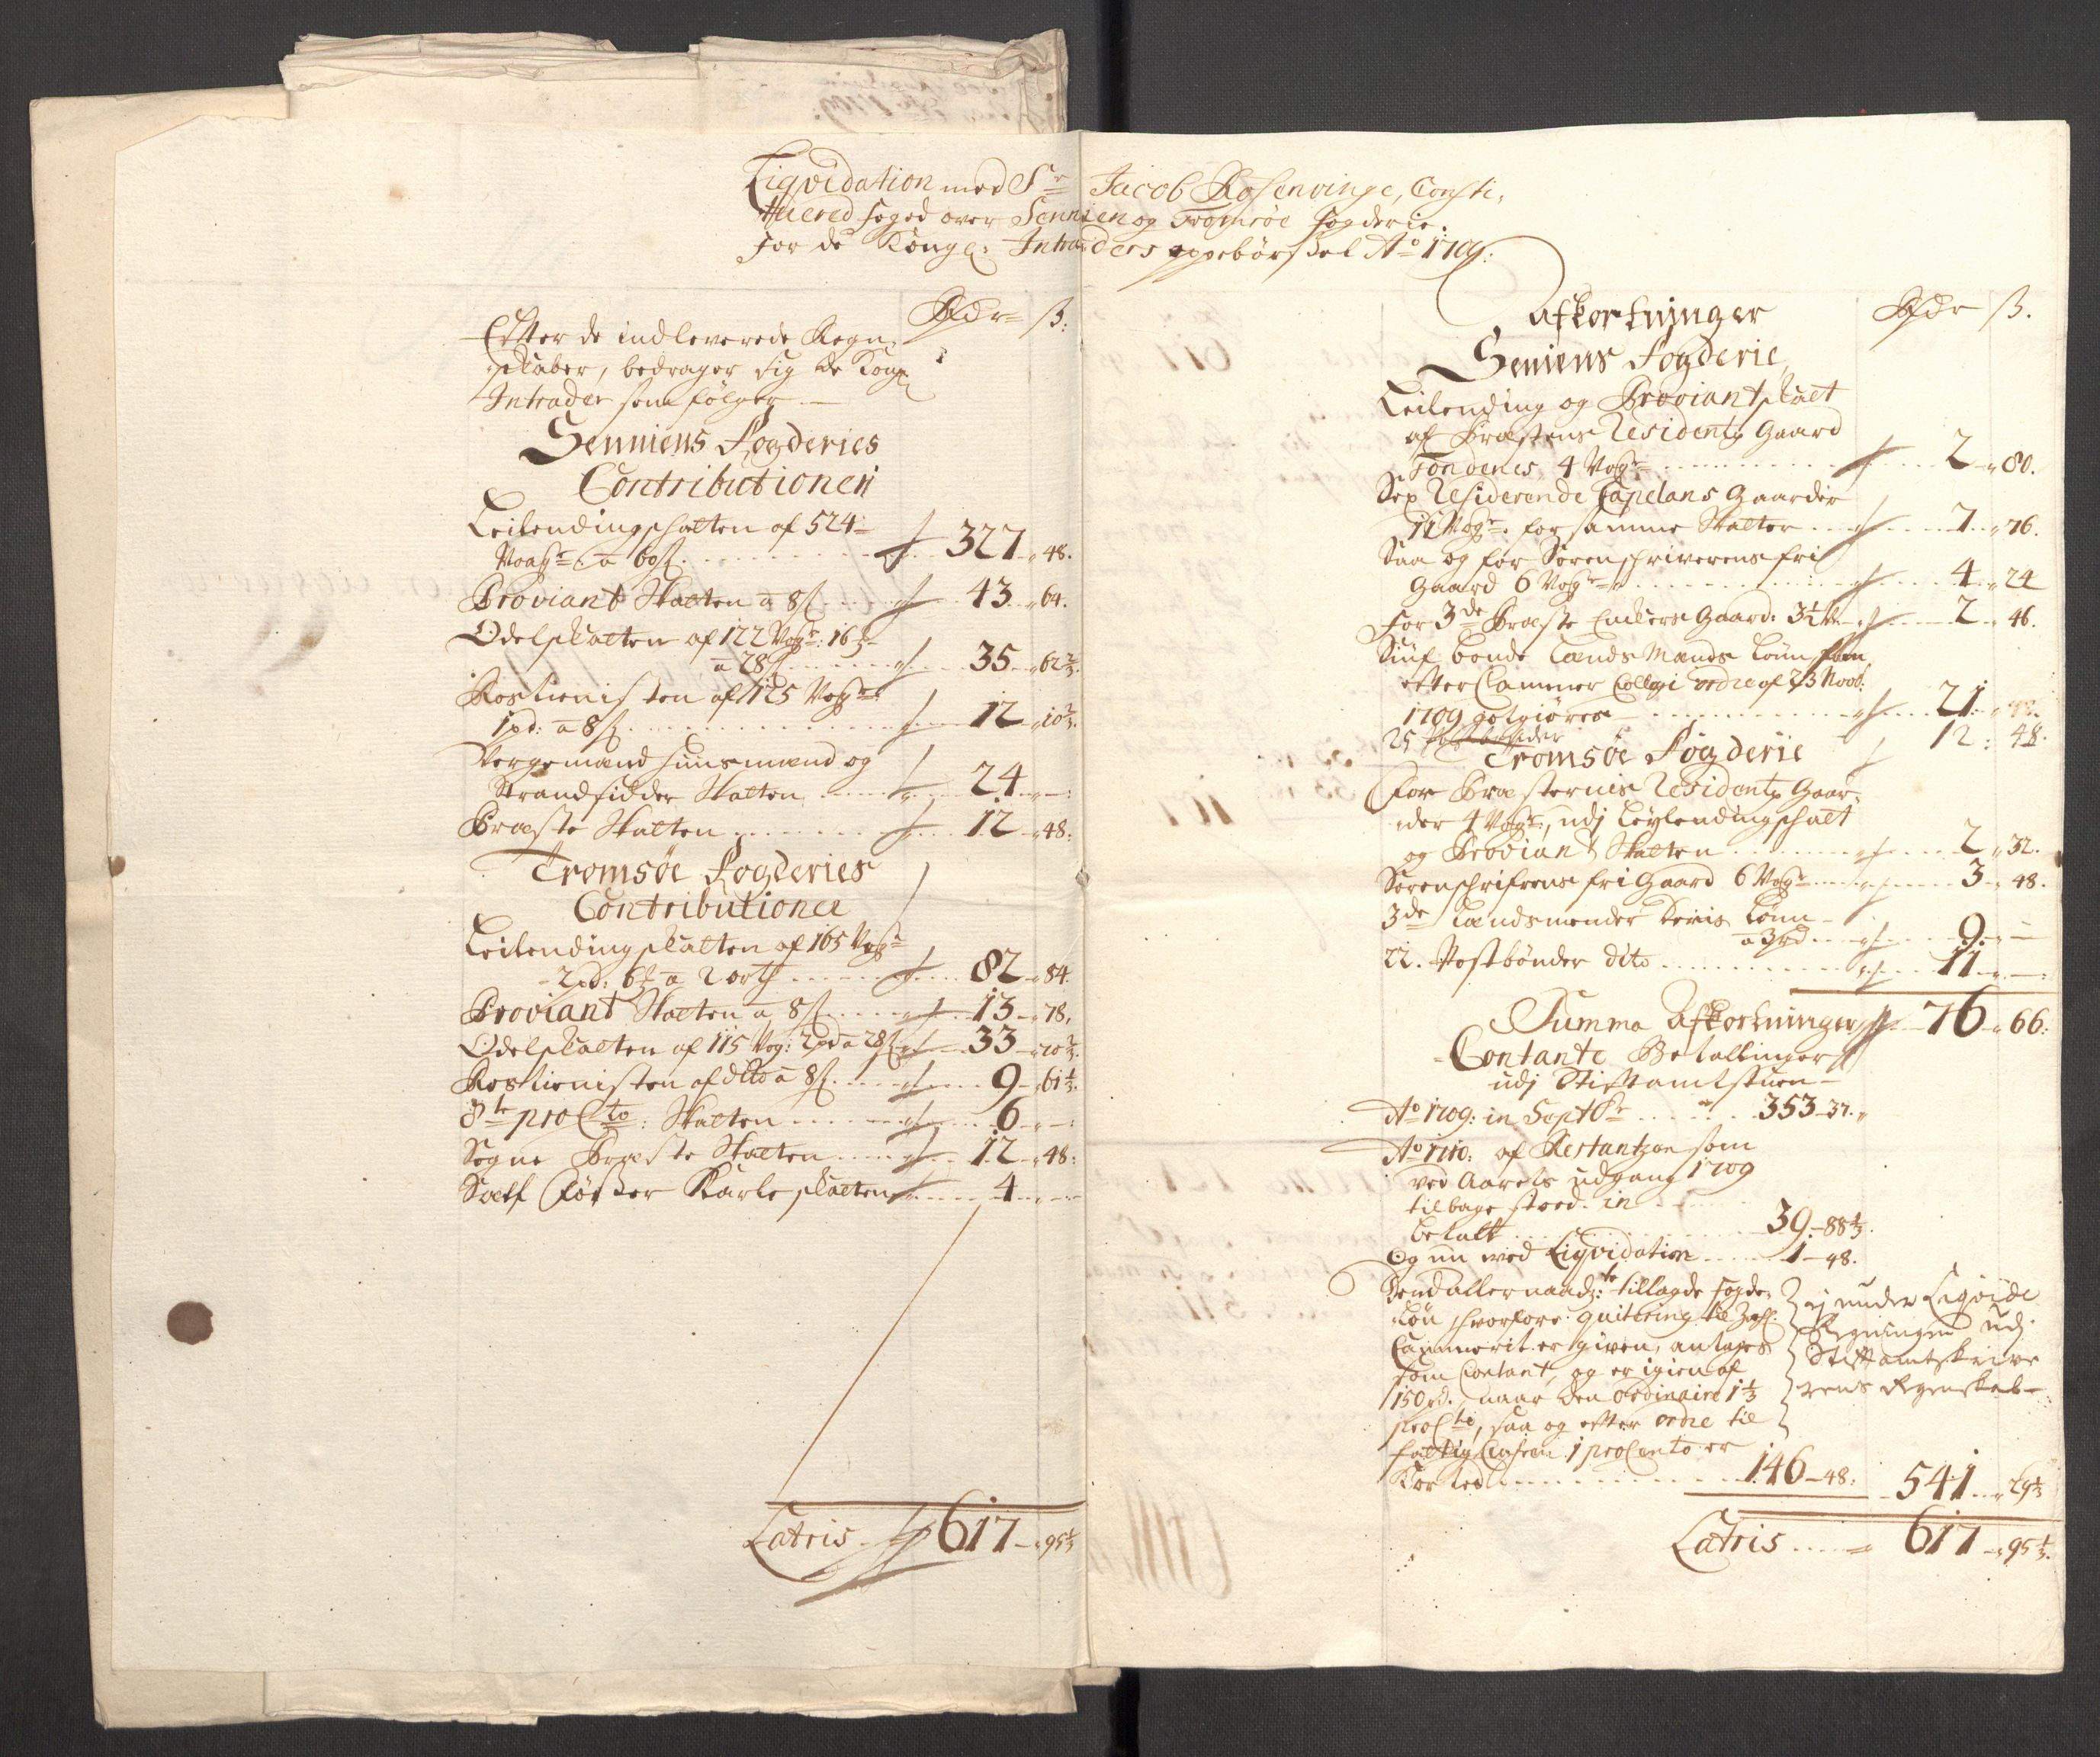 Liqvidation med Sr Jacob Rosenvinge, Consti,
tuered foged over Sennien og Tromsøe fogderie.
For de Kongl: Intraders oppebørsel Ao 1709:
Rdr ß:
Efter de indleverede Regn-
skaber, bedrager sig de Kongl
Intrader som følger
Senniens Fogderies
Contributioner
Leilendingschatten af 524
Voger a 60ß 327 48.
Proviant Skatten a 8ß 43 64.
Odelskatten af 122 Vog: 16
a 28ß 35 62 2/3.
Rostienisten af 125 Vog
1 pd: a 8ß 12 10 2/3.
Vergemænd huusmænd og
Strandsidder Skatten 24
Præste Skatten 12 48:
Tromsøe Fogderies
Contributioner
Leilendingskatten af 165 Vog
2 pd: 6 a 2 ort 82 84.
Proviant Skatten a 8ß 13 78,
Odelskatten af 115 Vog: 2 pd a 28ß 33 70 2/3.
Rostienisten af dito a 8ß 9 61 1/3.
pro Cto: Skatten 6
Sogne Præste Skatten 12 48:
Karle skatten 4
Latris 617 95 1/3
Rdr ß.
Afkortninger
Seniens Fogderie
Leilending og Proviantskatt
af Præstens Residentz Gaard
Tondenes 4 Vog 2 80.
Residerende Capelans Gaarder
11 Vog. for samme Skatter 7 76.
Saa og for Sorenschriverens fri
Gaard 6 Vog 4 24
For 3de Præste Enkers Gaard: 3 1/2 2 46.
bonde Lænds Mænds Lønn som
efter Cammer Collegi ordre af 23 Novb:
1709 21
25 Postbønder 12: 48.
Tromsøe Fogderie
For Præsternis Residentz Gaar-
der 4 Vog, udj Leylendingschatt
og Proviant Skatten 2 32.
Sorenschrifrens fri Gaard 6 Vog 3 48.
3de Lændsmender deris Lønn
a 3rd 9
22. Postbønder dito 11
Summa Afkortninger 76 66:
Contante Betallinger
udj Stiftamtstuen
Ao 1709: in Septbr 353 37.
Ao 1710: af Restantzen som
ved Aarets udgang 1709
tilbage stoed in
betalt 39 88 1/3.
Og nu ved Liqvidation 1 48.
Dend allernaadte: tillagde fogde-
Løn hvorfore quitering til
Cammerit er given, antages
som Contant, og er igien af
150 rd. naar den ordinaire 1 1/3
pro Cto, saa og efter ordre til
fattig Cassen 1 pro Cento er
Kortted 146 48: 541 29 1/3
Regningen udj
Stiftamtskrive
rens Regenskab
Latris 617 95 1/3.